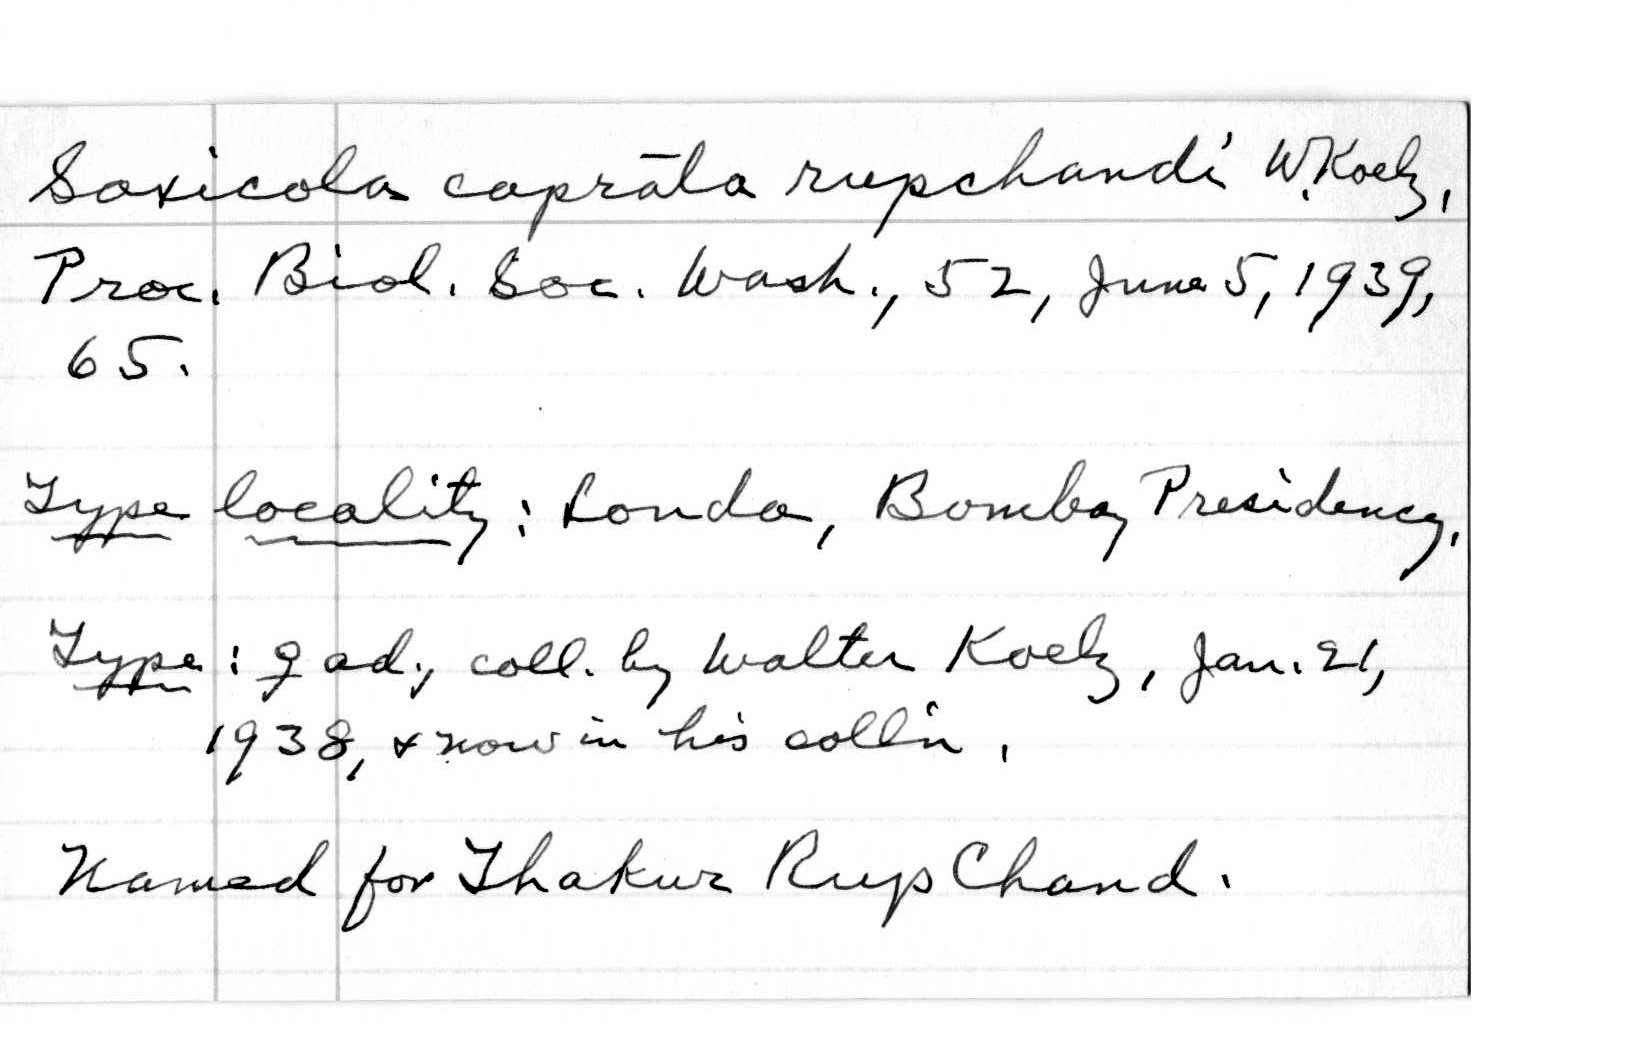 Saxicola caprāta rupchandi W. Koelz,
Proc. Biol. Soc. Wash., 52, June 5, 1939,
65.
Type locality: Londa, Bombay Presidency.
Type: ♀ ad., coll. by Walter Koelz, Jan. 21,
1938, & now in his coll'n.
Named for Thakur Rup Chand.